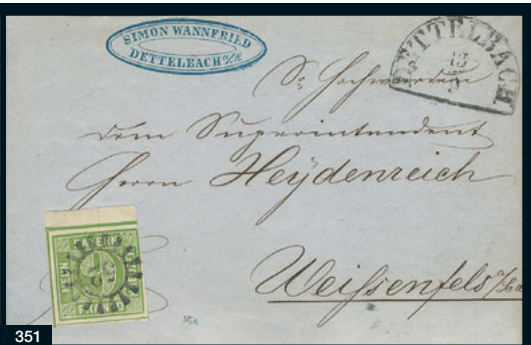 SIMON WANNFRIED
DETTELBACH a/M
DETTELBACH
13
9
Sr Hochwürden
dem Superintendent
Herrn Heydenreich
Weißenfels a/Saa
BAYERN
FRANCO
351